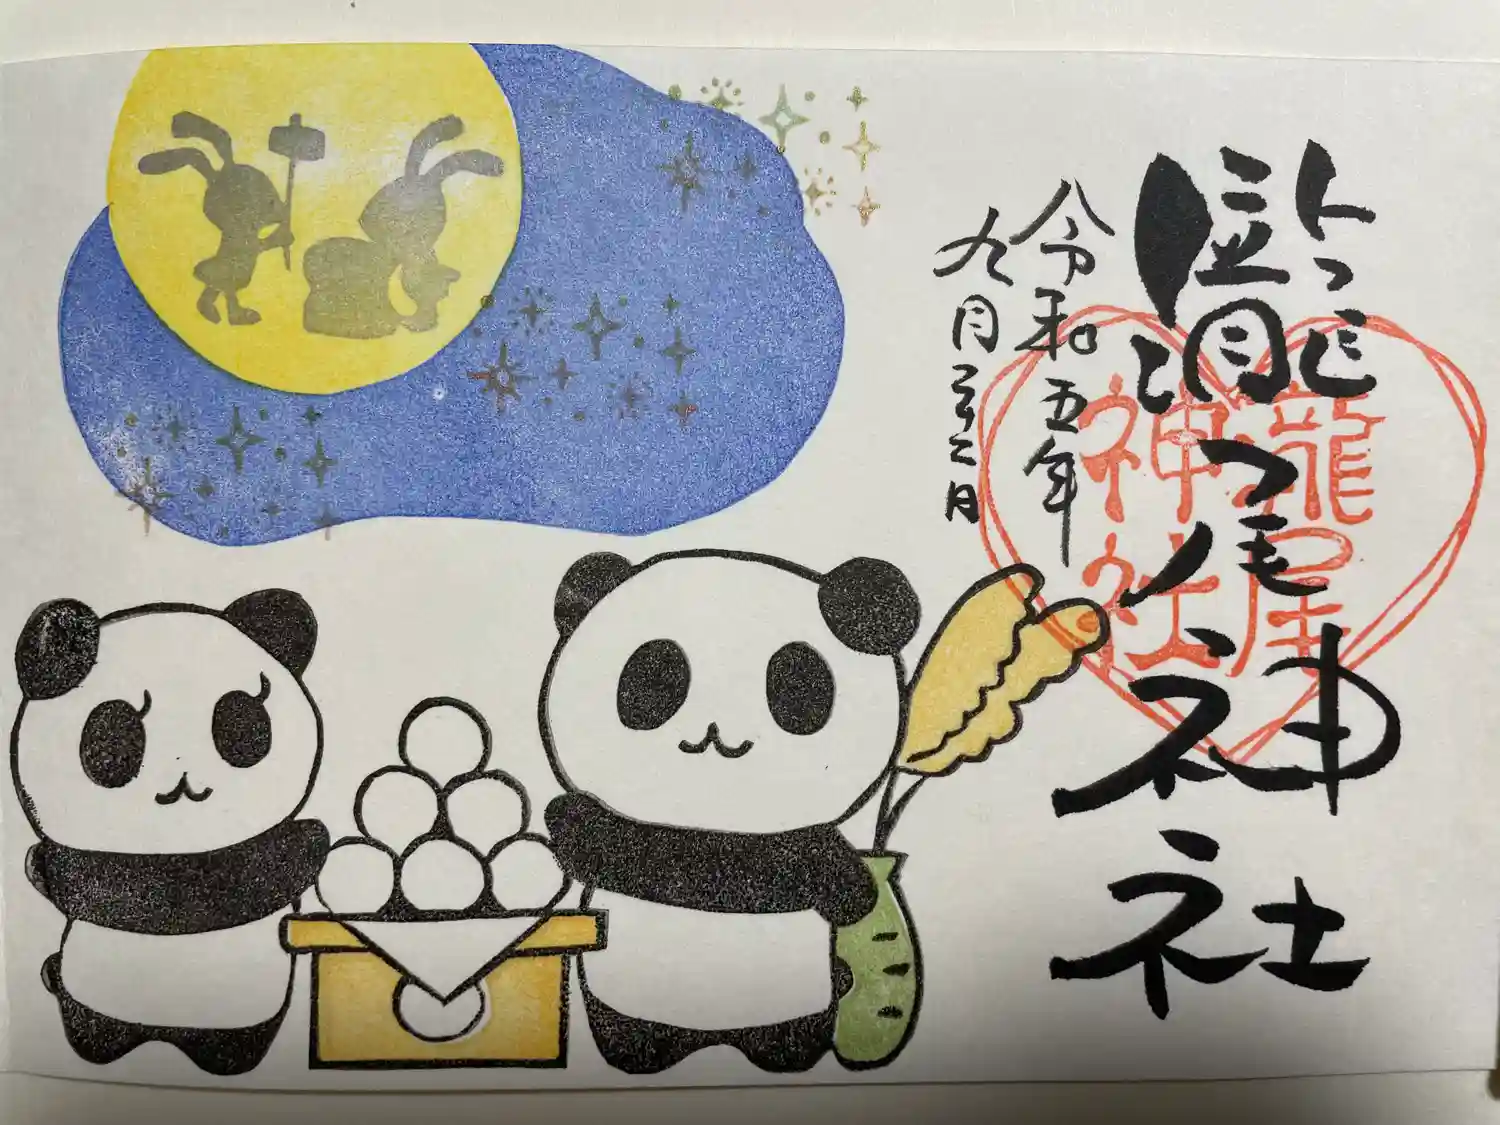 龍尾神社
龍尾
神社
令和五年
九月二十三日